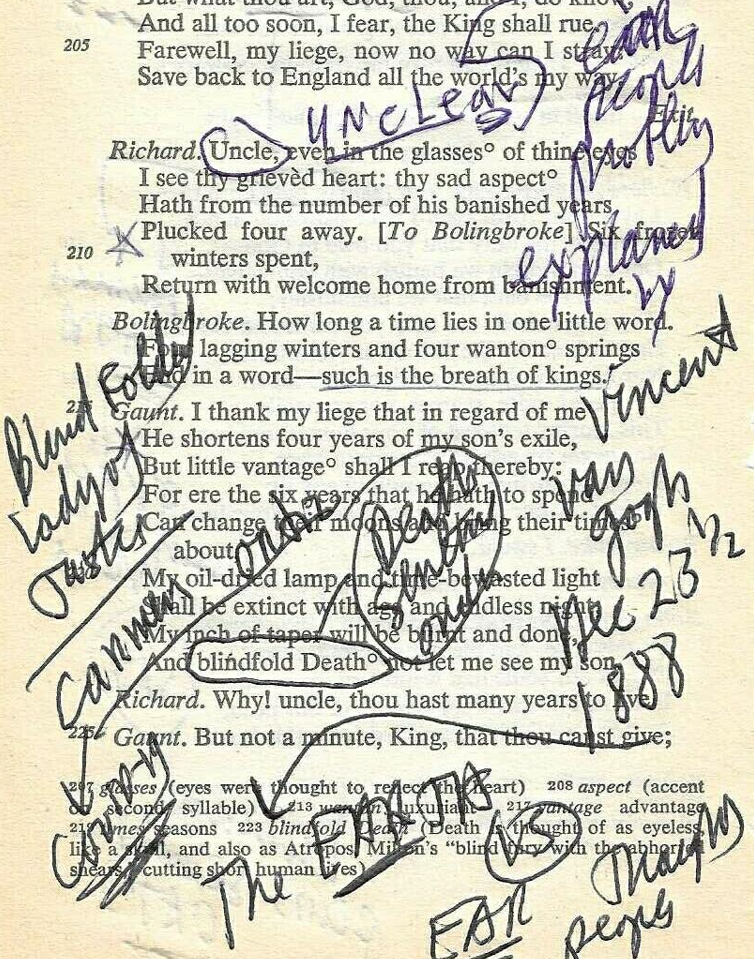 And all too soon, I fear, the King shall rue.
205 Farewell, my liege, now no way can I stray:
Save back to England all the world's my way.
Exit.
UNCLEAR
Richard. Uncle, even in the glasses° of thine eyes
I see thy grievèd heart: thy sad aspect°
Hath from the number of his banished years
Plucked four away. [To Bolingbroke] Six frozen
210 winters spent,
Return with welcome home from banishment.
explaned
by
Vincent
van
gogh
Dec 23 1/2
1888
Bolingbroke. How long a time lies in one little word.
Four lagging winters and four wanton° springs
End in a word—such is the breath of kings.
Gaunt. I thank my liege that in regard of me
He shortens four years of my son's exile,
But little vantage° shall I reap thereby:
For ere the six years that he hath to spend
Can change their moons and bring their times°
about,
My oil-dried lamp and time-bewasted light
Shall be extinct with age and endless night,
My inch of taper will be burnt and done,
And blindfold Death° not let me see my son.
Richard. Why! uncle, thou hast many years to live.
225 Gaunt. But not a minute, King, that thou canst give;
Blind Folded
Lady of
Death
207 glasses (eyes were thought to reflect the heart) 208 aspect (accent
on second syllable) 213 wanton luxuriant 217 vantage advantage
219 times seasons 223 blindfold Death (Death is thought of as eyeless,
like a skull, and also as Atropos, Milton's "blind fury with the abhorred
shears," cutting short human lives)
The
VS
EAR
peoples